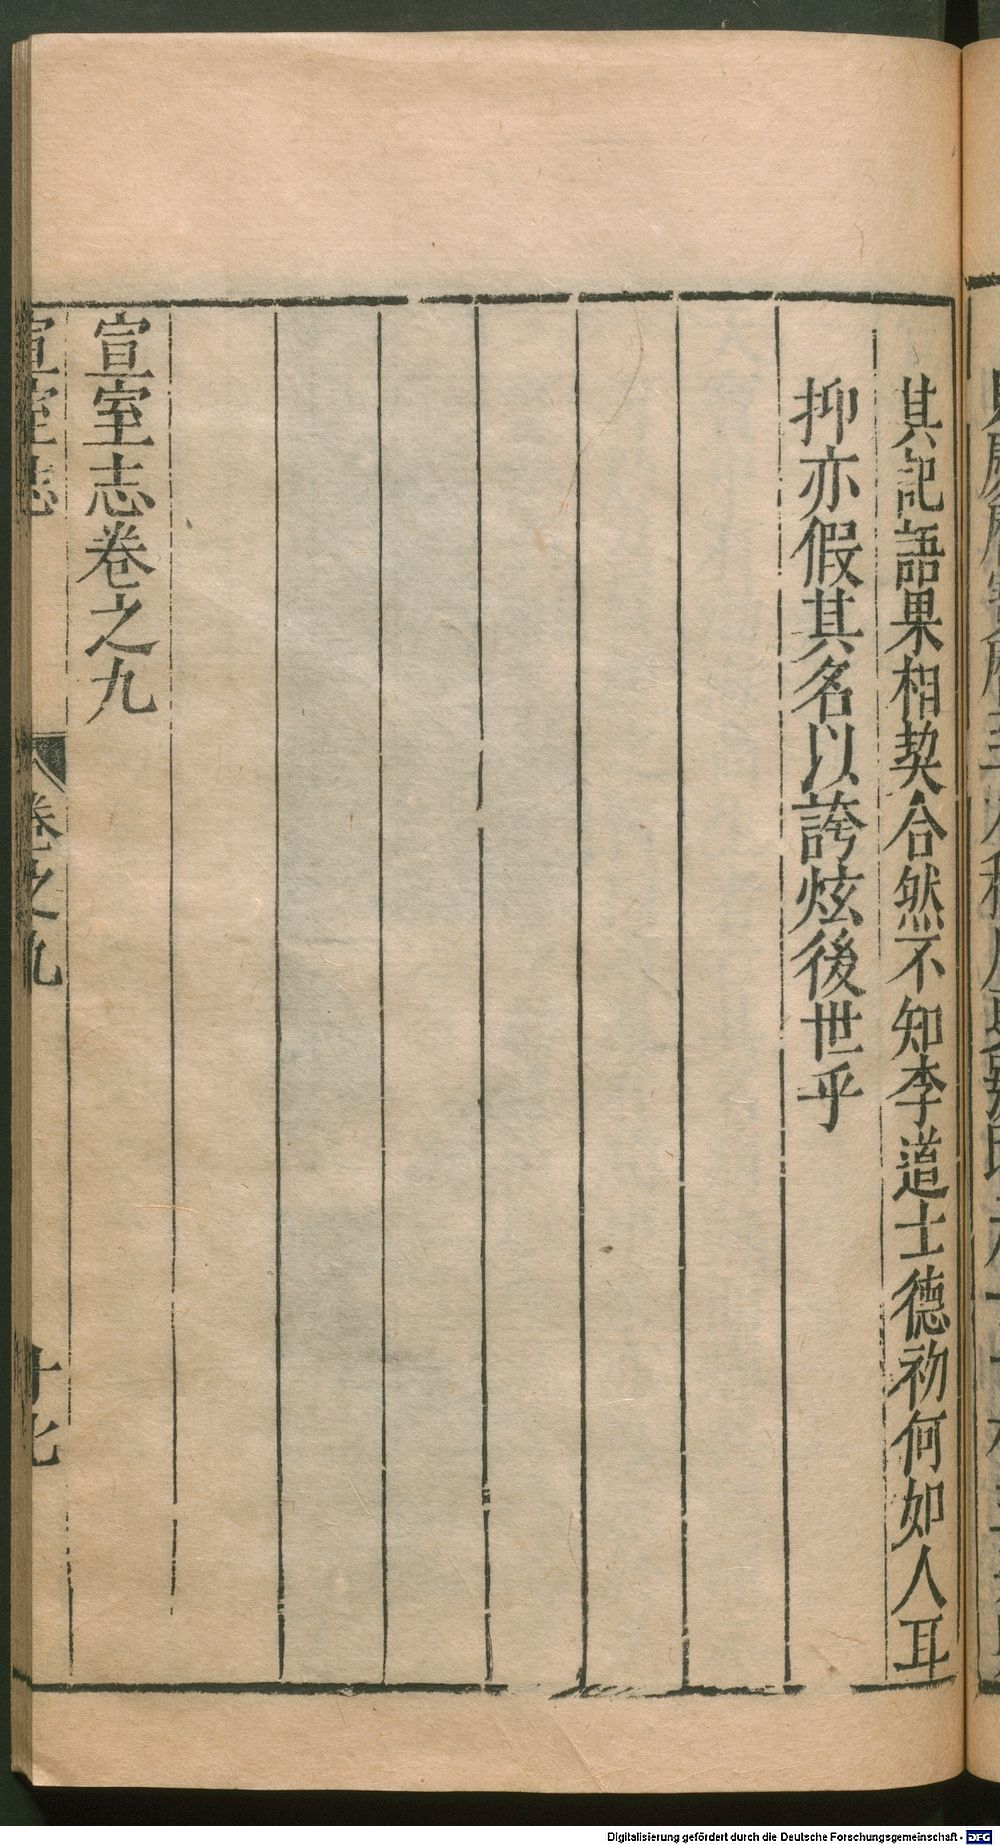 其記語果相契合然不知李道士德初何如人耳
抑亦假其名以誇炫後世乎
宣室志卷之九
宣室志
卷之九
Digitalisierung gefördert durch die Deutsche Forschungsgemeinschaft - DFG